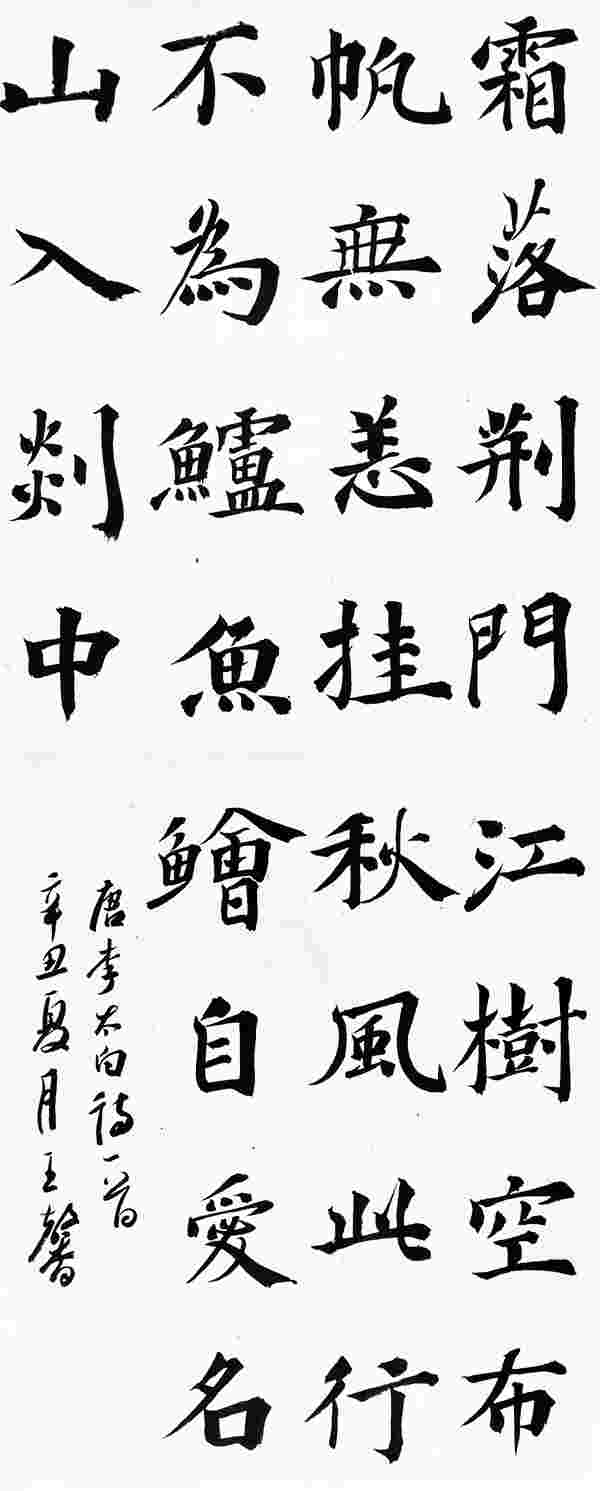 霜落荆門江樹空布
帆無恙挂秋風此行
不為鱸魚鱠自愛名
山入剡中
唐李太白詩一首
辛丑夏月王馨